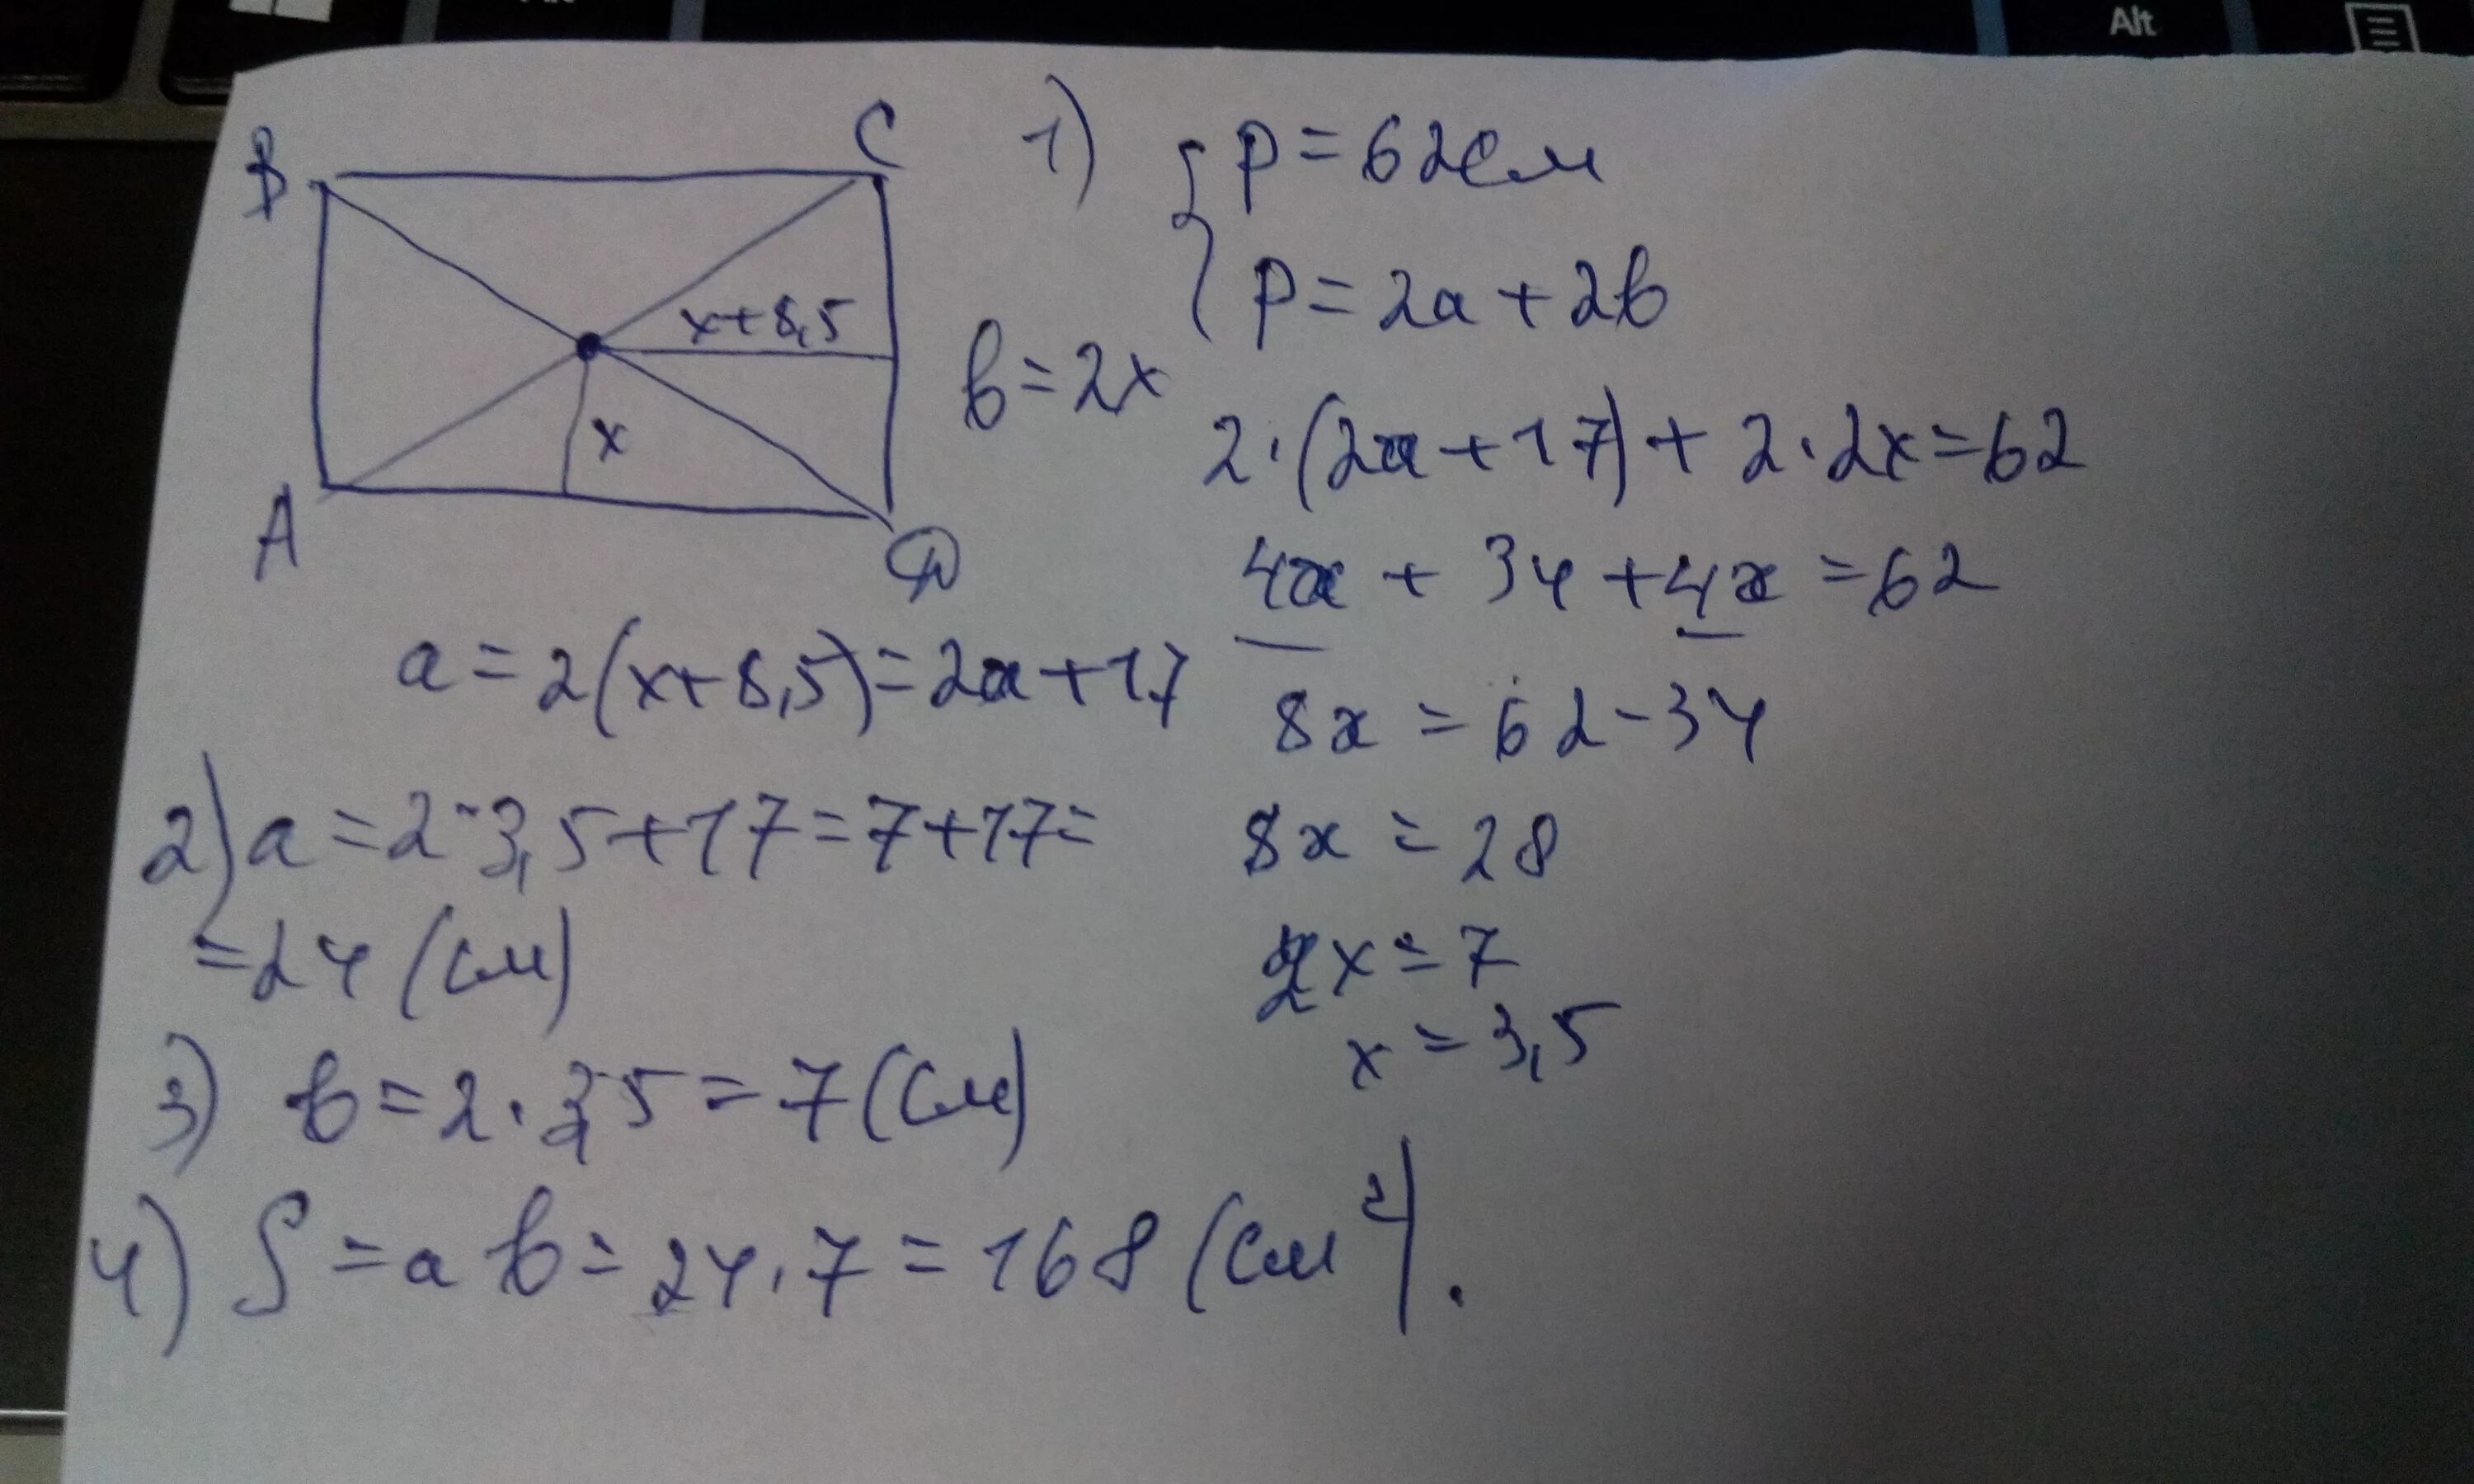 Alt
B
C
x+8,5
x
A
D
1) { p=62см
p=2a+2b
b=2x
2·(2x+17)+2·2x=62
4x + 34 +4x =62
a=2(x+8,5)=2x+17
8x = 62-34
8x = 28
2x=7
x=3,5
2) a=2·3,5+17=7+17=
=24 (см)
3) b=2·3,5=7(см)
4) S=ab=24·7=168 (см²).